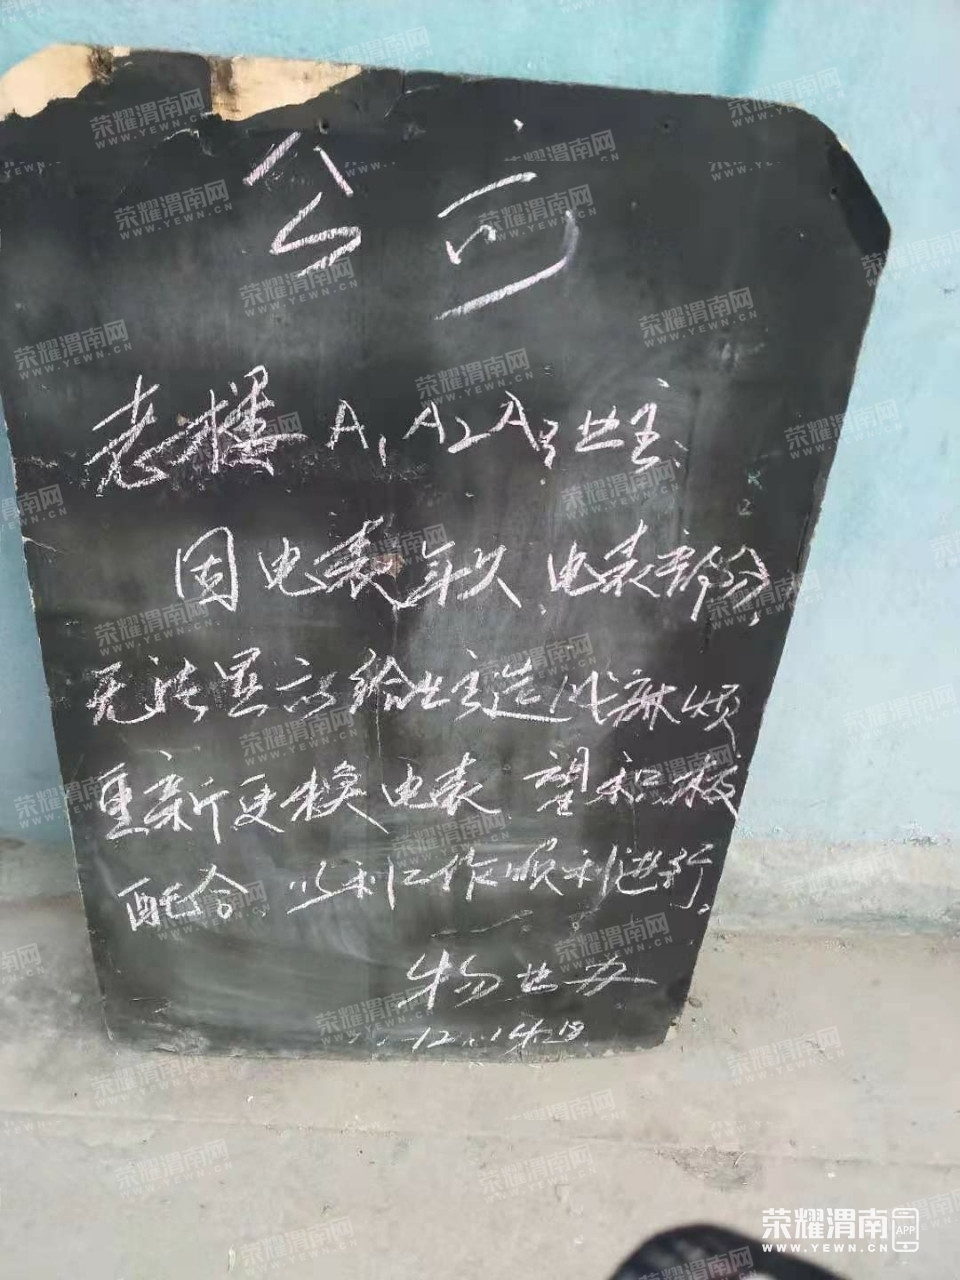 公司
老楼A1A2A3业主
因电表年久、电表部分
无法显示给业主造成麻烦
重新更换电表 望积极
配合 以利工作顺利进行。
物业办
12.14
荣耀渭南网
WWW.YEWN.CN
荣耀渭南 APP
WWW.YEWN.CN